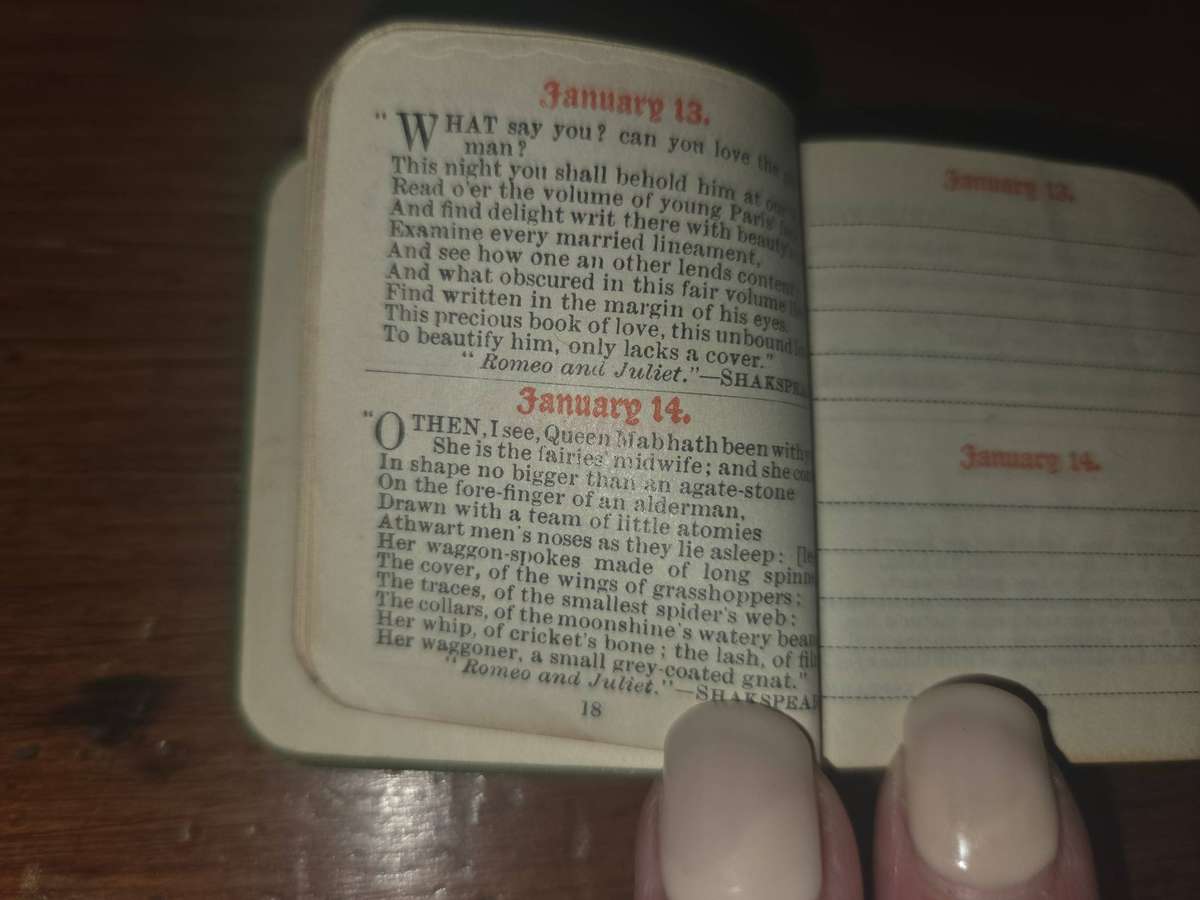 January 13.
"WHAT say you? can you love the
man?
This night you shall behold him at our
Read o'er the volume of young Paris'
And find delight writ there with beauty's
Examine every married lineament,
And see how one an other lends content
And what obscured in this fair volume
Find written in the margin of his eyes.
This precious book of love, this unbound
To beautify him, only lacks a cover."
"Romeo and Juliet."—SHAKSPEA
January 14.
"O THEN, I see, Queen Mab hath been with
She is the fairies' midwife; and she
In shape no bigger than an agate-stone
On the fore-finger of an alderman,
Drawn with a team of little atomies
Athwart men's noses as they lie asleep:
Her waggon-spokes made of long spinn
The cover, of the wings of grasshoppers;
The traces, of the smallest spider's web:
The collars, of the moonshine's watery beam
Her whip, of cricket's bone; the lash, of
Her waggoner, a small grey-coated gnat."
"Romeo and Juliet."—SHAKSPEAR
18
January 13.
January 14.